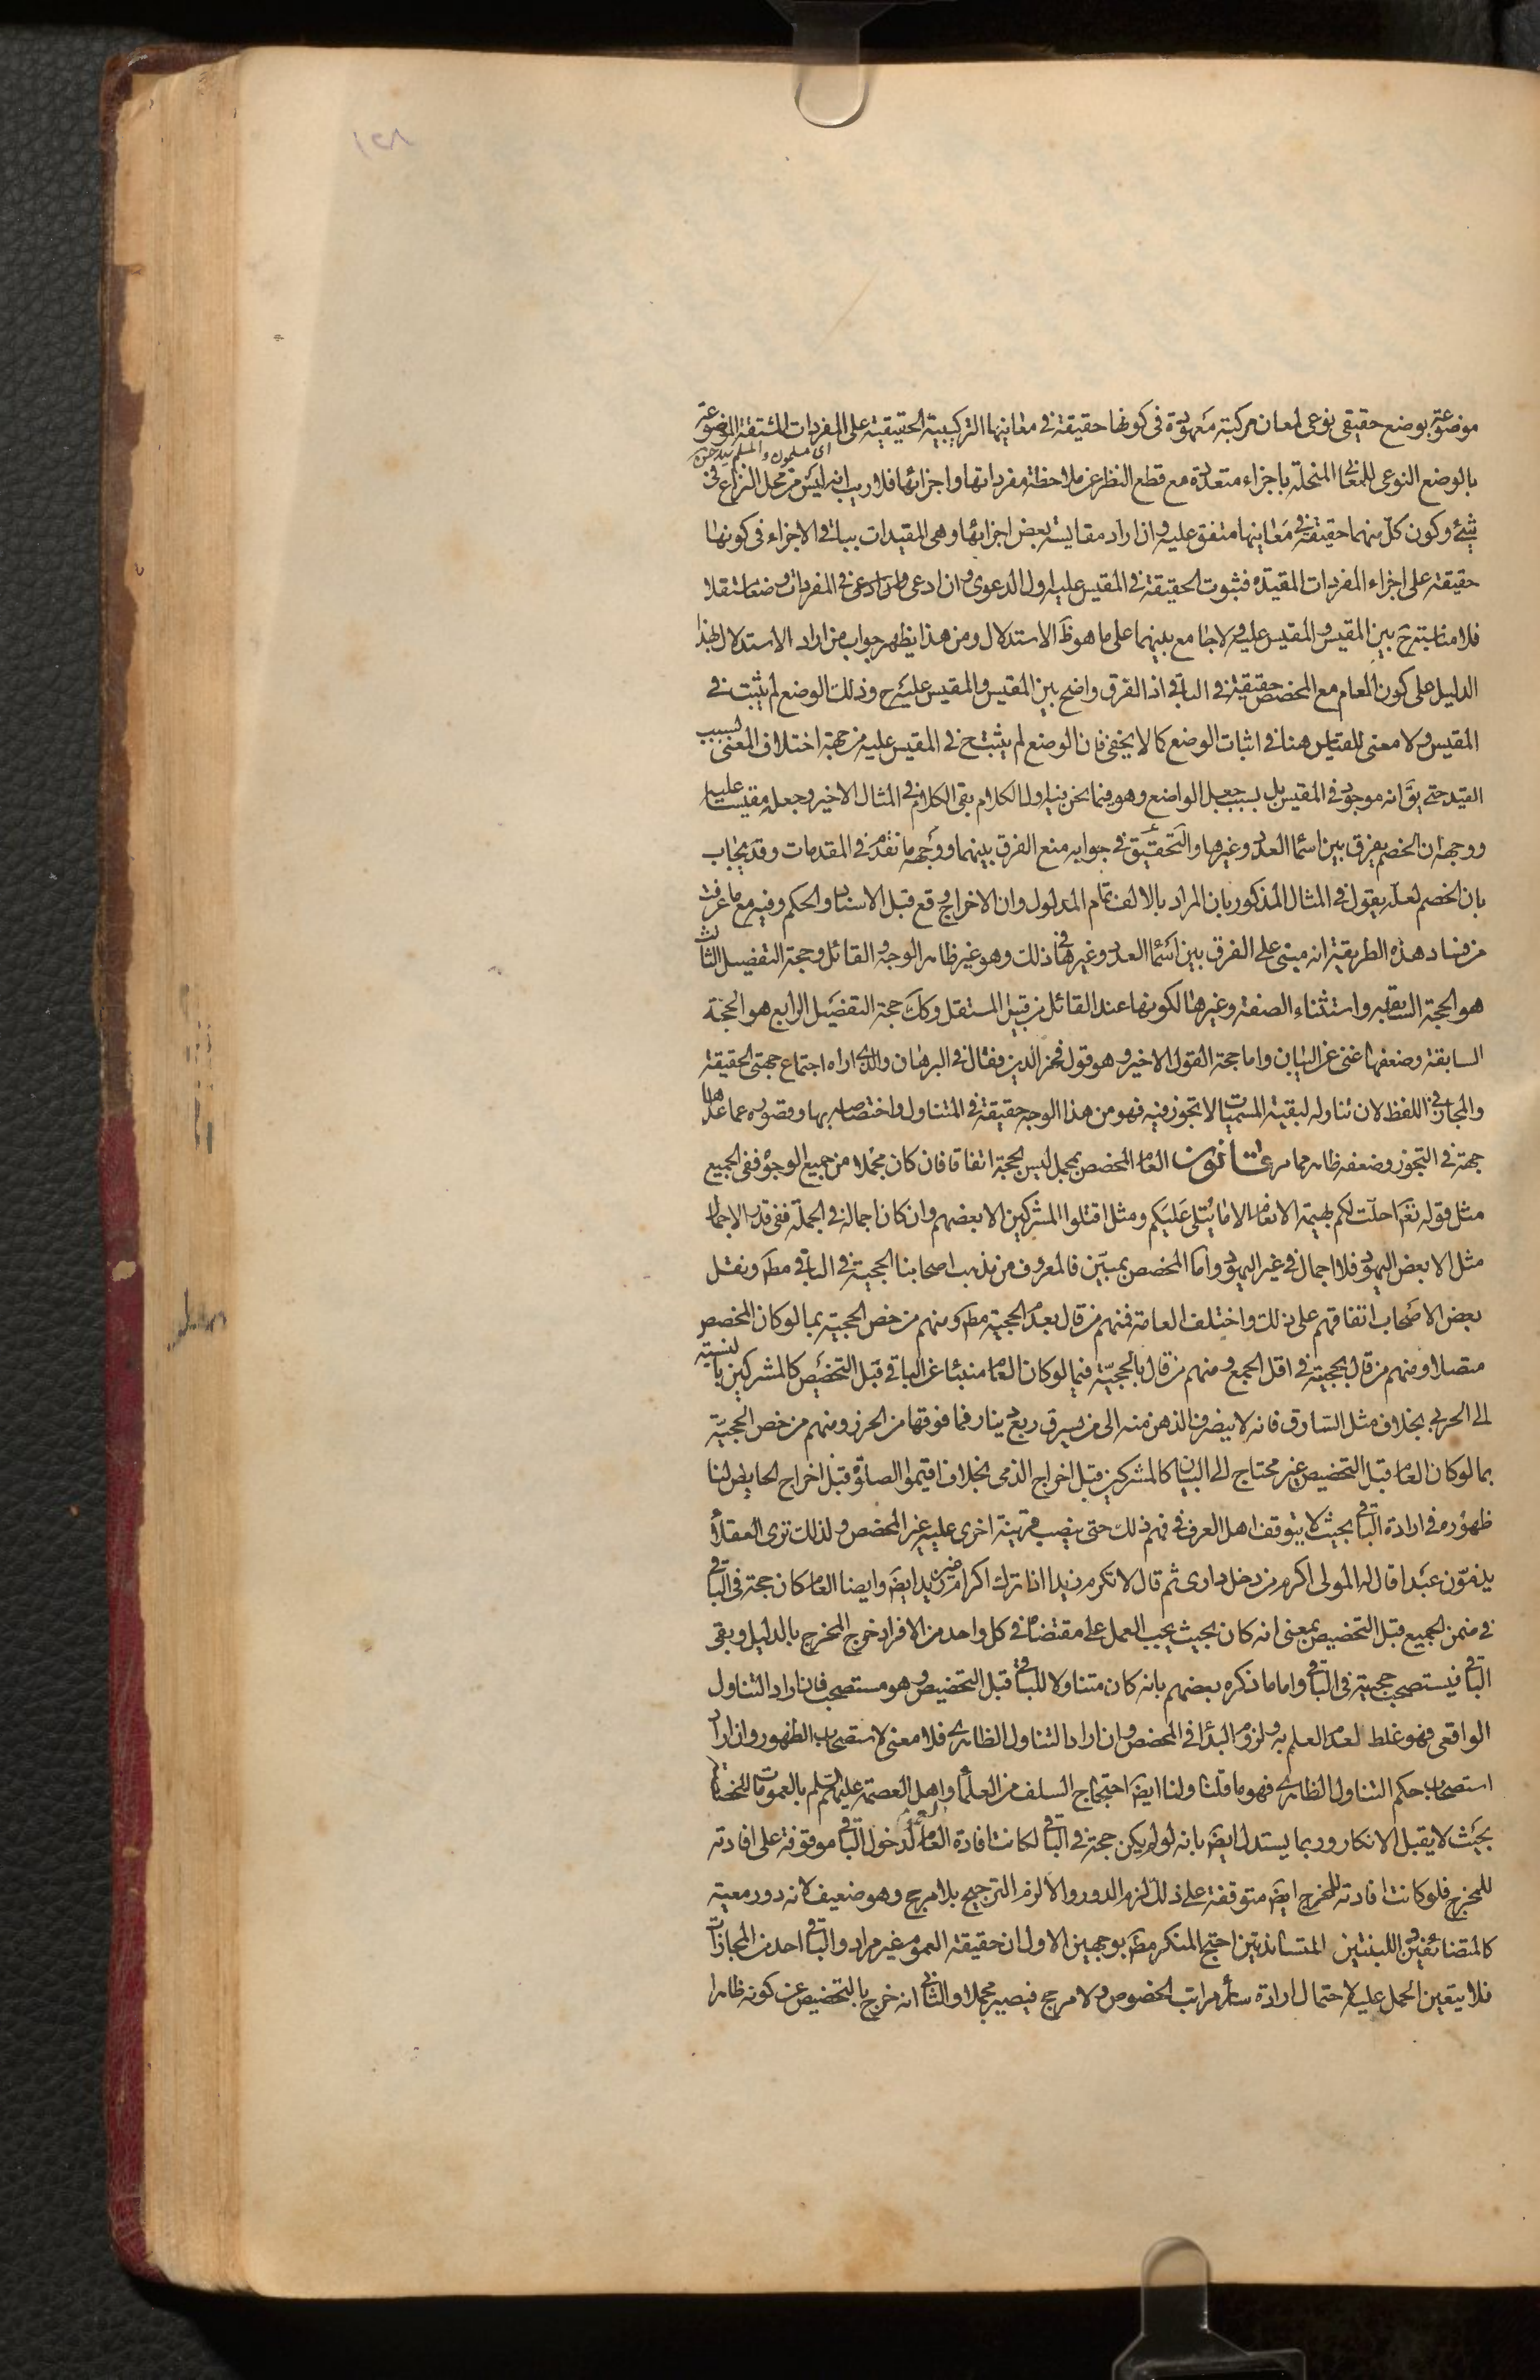 موضوعة بوضع حقيقى نوعى لمعان مركبة معهودة فى كونها حقيقة فى معانيها التركيبية الحقيقية على المفردات المشتقة الموضوعة
اى مسلمون والمسلم
بالوضع النوعى للمعانى المنحلة باجزاء متعددة مع قطع النظر عن ملاحظة مفرداتها واجزائها فلا ريب انه ليس من محل النزاع فى
شئ وكون كل منهما حقيقة فى معانيها متفق عليه وان اراد مقايسة بعض اجزائها وهى المقيدات بباقى الاجزاء فى كونها
حقيقة على اجزاء المفردات المقيدة فثبوت الحقيقة فى المقيس عليه اول الدعوى وان ادعى فى المفردات وضعا مستقلا
فلا مناسبة ح بين المقيس والمقيس عليه ولا جامع بينهما على ما هو ظ الاستدلال ومن هذا يظهر جواب من اراد الاستدلال بهذا
الدليل على كون العام مع المخصص حقيقة فى الباقى اذ الفرق واضح بين المقيس والمقيس عليه ح وذلك الوضع لم يثبت فى
المقيس ولا معنى للقياس هنا فى اثبات الوضع كما لا يخفى فان الوضع لم يثبت ح فى المقيس عليه من جهة اختلاف المعنى بسبب
القيد حتى يق انه موجود فى المقيس بل بسبب جعل الواضع وهو فيما نحن فيه اول الكلام بقى الكلام فى المثال الاخير وجعله مقيسا عليه
ووجهه ان الخصم يفرق بين اسماء العدد وغيرها والتحقيق فى جوابه منع الفرق بينهما ووجهه ما تقدم فى المقدمات وقد يجاب
بان الخصم لعله يقول فى المثال المذكور بان المراد بالالف تمام المدلول وان الاخراج وقع قبل الاسناد والحكم وفيه مع ما عرفت
من فساد هذه الطريقة انه مبنى على الفرق بين اسماء العدد وغيرها فى ذلك وهو غير ظاهر الوجه والقائل وحجة التفصيل الثالث
هو الحجة السابقة واستثناء الصفة وغيرها لكونها عند القائل من قبيل المستقل وكك حجة التفصيل الرابع هو الحجة
السابقة وضعفها غنى عن البيان واما حجة القول الاخير وهو قول فخر الدين فقال فى البرهان والذى اراه اجتماع جهتى الحقيقة
والمجاز فى اللفظ لان تناوله لبقية المسميات لا تجوز فيه فهو من هذا الوجه حقيقة فى المتناول واختصاصه بها وقصوره عما عداها
جهة فى التجوز وضعفه ظاهر مما مر قانون العام المخصص بمجمل ليس بحجة اتفاقا فان كان مجملا من جميع الوجوه ففى الجميع
مثل قوله تعم احلت لكم بهيمة الانعام الا ما يتلى عليكم ومثل اقتلوا المشركين الا بعضهم وان كان اجماله فى الجملة ففى قدر الاجمال
مثل الا بعض اليهود فلا اجمال فى غير اليهود واما المخصص بمبين فالمعروف من مذهب اصحابنا الحجية فى الباقى مط ونقل
بعض الاصحاب اتفاقهم على ذلك واختلف العامة فمنهم من قال بعدم الحجية مط ومنهم من خص الحجية بما لو كان المخصص
متصلا ومنهم من قال بحجيته فى اقل الجمع ومنهم من قال بالحجية فيما لو كان العام منبئا عن الباقى قبل التخصيص كالمشركين بالنسبة
الى الحربى بخلاف مثل السارق فانه لا ينصرف الذهن منه الى من يسرق ربع دينار فما فوقها من الحرز ومنهم من خص الحجية
بما لو كان العام قبل التخصيص غير محتاج الى البيان كالمشركين قبل اخراج الذمى بخلاف اقيموا الصلوة قبل اخراج الحايض لنا
ظهوره فى ارادة الباقى بحيث لا يتوقف اهل العرف فى فهم ذلك حتى ينصب قرينة اخرى عليه غير المخصص ولذلك ترى العقلاء
يذمون عبدا قال له المولى اكرم من دخل دارى ثم قال لا تكرم زيدا اذا ترك اكرام غير زيد ايض وايضا العام كان حجة فى الباقى
فى ضمن الجميع قبل التخصيص بمعنى انه كان بحيث يجب العمل على مقتضاه فى كل واحد من الافراد خرج المخرج بالدليل وبقى
الباقى فيستصحب حجيته فى الباقى واما ما ذكره بعضهم بانه كان متناولا للباقى قبل التخصيص وهو مستصحب فان اراد التناول
الواقعى فهو غلط لعدم العلم به ولزوم البداء فى المخصص وان اراد التناول الظاهرى فلا معنى لاستصحاب الظهور وان اراد
استصحاب حكم التناول الظاهرى فهو ما قلنا ولنا ايض احتجاج السلف من العلماء واهل العصمة عليهم السلم بالعمومات المخصصة
بحيث لا يقبل الانكار وربما يستدل ايض بانه لو لم يكن حجة فى الباقى لكانت افادة العام لدخول الباقى موقوفة على افادته
للمخرج فلو كانت افادته للمخرج ايض متوقفة على ذلك لزم الدور والا لزم الترجيح بلا مرجح وهو ضعيف لانه دور معية
كالمتضائفين واللبنتين المتساندتين احتج المنكر مط بوجهين الاول ان حقيقة العموم غير مراد والباقى احد من المجازات
فلا يتعين الحمل عليه لاحتمال ارادة سائر مراتب الخصوص ولا مرجح فيصير مجملا والثانى انه خرج بالتخصيص عن كونه ظاهرا